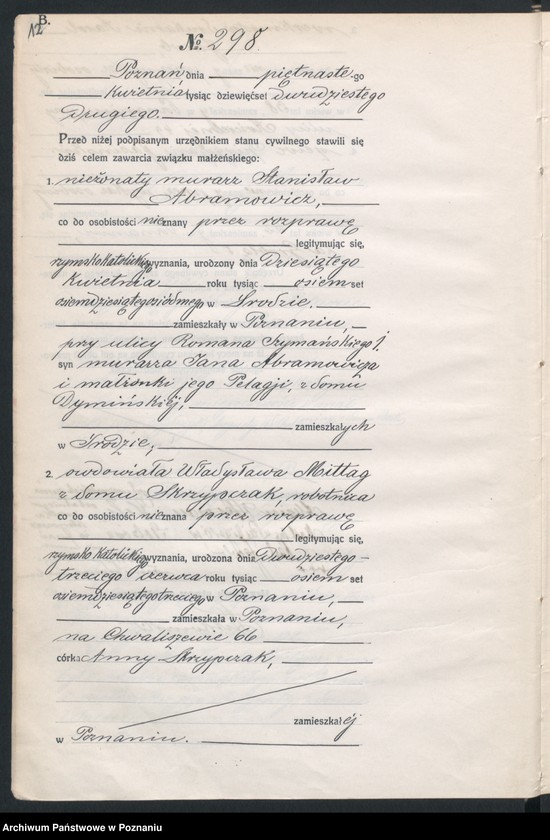 B.
12
№. 298.
Poznań, dnia piętnaste-go
Kwietnia tysiąc dziewięćset dwudziestego
drugiego.
Przed niżej podpisanym urzędnikiem stanu cywilnego stawili się
dziś celem zawarcia związku małżeńskiego:
1. nieżonaty murarz Stanisław
Abramowicz,
co do osobistości nieznany przez rozprawę
legitymując się,
rzymsko katolickiego wyznania, urodzony dnia dziesiątego
Kwietnia roku tysiąc osiemset
osiemdziesiątego siódmego w Środzie.
zamieszkały w Poznaniu,
przy ulicy Romana Szymańskiego 1.
syn murarza Jana Abramowicza
i małżonki jego Pelagji, z domu
Dymińskiéj,
zamieszkałych
w Środzie,
2. owdowiała Władysława Mittag
z domu Skrzypczak, robotnica
co do osobistości nieznana przez rozprawę
legitymując się,
rzymsko katolickiego wyznania, urodzona dnia dwudziestego-
trzeciego czerwca roku tysiąc osiem set
osiemdziesiątego trzeciego w Poznaniu,
zamieszkała w Poznaniu,
na Chwaliszewie 66
córka Anny Skrzypczak,
zamieszkałéj
w Poznaniu.
Archiwum Państwowe w Poznaniu